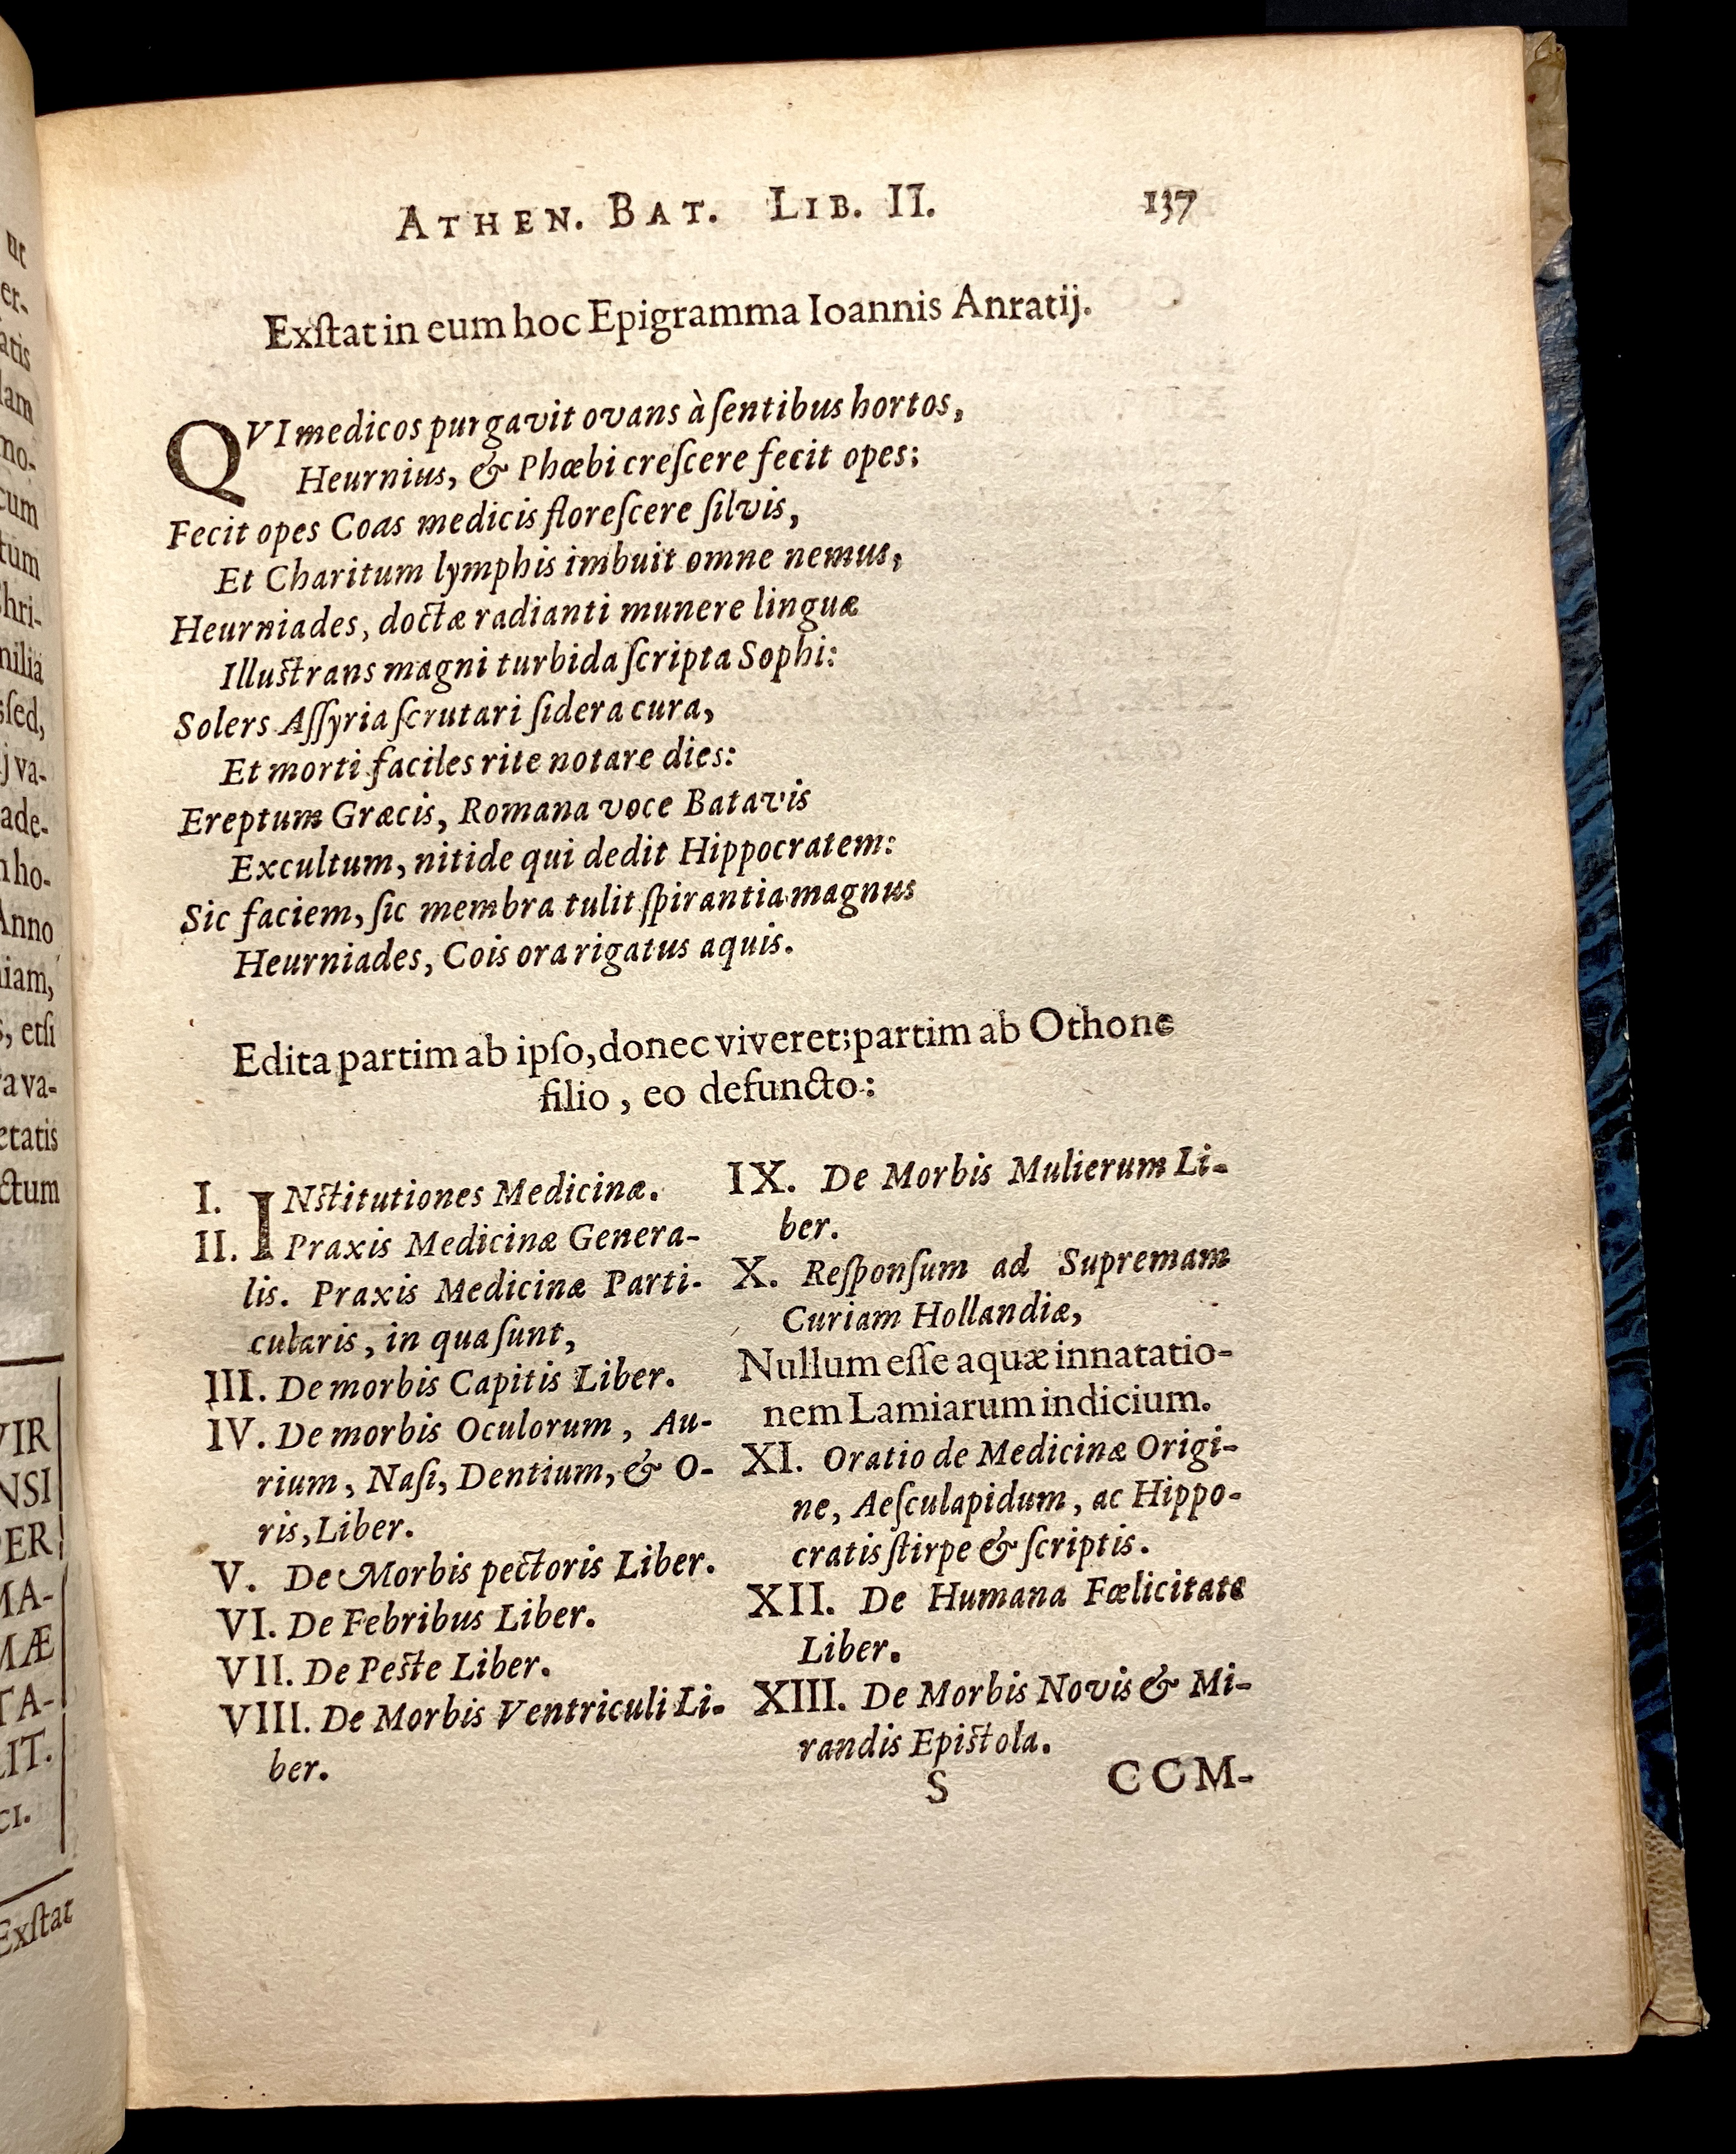 ne
er-
atis
lam
mo-
cum
tum
hri-
nilia
sſed,
j va-
ade-
n ho-
Anno
niam,
s, etſi
ra va-
etatis
ctum
VIR
NSI
PER
MA-
MÆ
TA-
LIT.
CI.
Exſtat
ATHEN. BAT. LIB. II. 137
Exſtat in eum hoc Epigramma Ioannis Anratij.
QVI medicos purgavit ovans à ſentibus hortos,
Heurnius, & Phœbi creſcere fecit opes;
Fecit opes Coas medicis floreſcere ſilvis,
Et Charitum lymphis imbuit omne nemus,
Heurniades, doctæ radianti munere linguæ
Illuſtrans magni turbida ſcripta Sophi:
Solers Aſſyria ſcrutari ſidera cura,
Et morti faciles rite notare dies:
Ereptum Græcis, Romana voce Batavis
Excultum, nitide qui dedit Hippocratem:
Sic faciem, ſic membra tulit ſpirantia magnus
Heurniades, Cois ora rigatus aquis.
Edita partim ab ipſo, donec viveret; partim ab Othone
filio, eo defuncto:
I. INſtitutiones Medicinæ.
II. Praxis Medicinæ Genera-
lis. Praxis Medicinæ Parti-
cularis, in qua ſunt,
III. De morbis Capitis Liber.
IV. De morbis Oculorum, Au-
rium, Naſi, Dentium, & O-
ris, Liber.
V. De Morbis pectoris Liber.
VI. De Febribus Liber.
VII. De Peſte Liber.
VIII. De Morbis Ventriculi Li-
ber.
IX. De Morbis Mulierum Li-
ber.
X. Reſponſum ad Supremam
Curiam Hollandiæ,
Nullum eſſe aquæ innatatio-
nem Lamiarum indicium.
XI. Oratio de Medicinæ Origi-
ne, Aeſculapidum, ac Hippo-
cratis ſtirpe & ſcriptis.
XII. De Humana Fœlicitate
Liber.
XIII. De Morbis Novis & Mi-
randis Epiſtola.
S CCM-